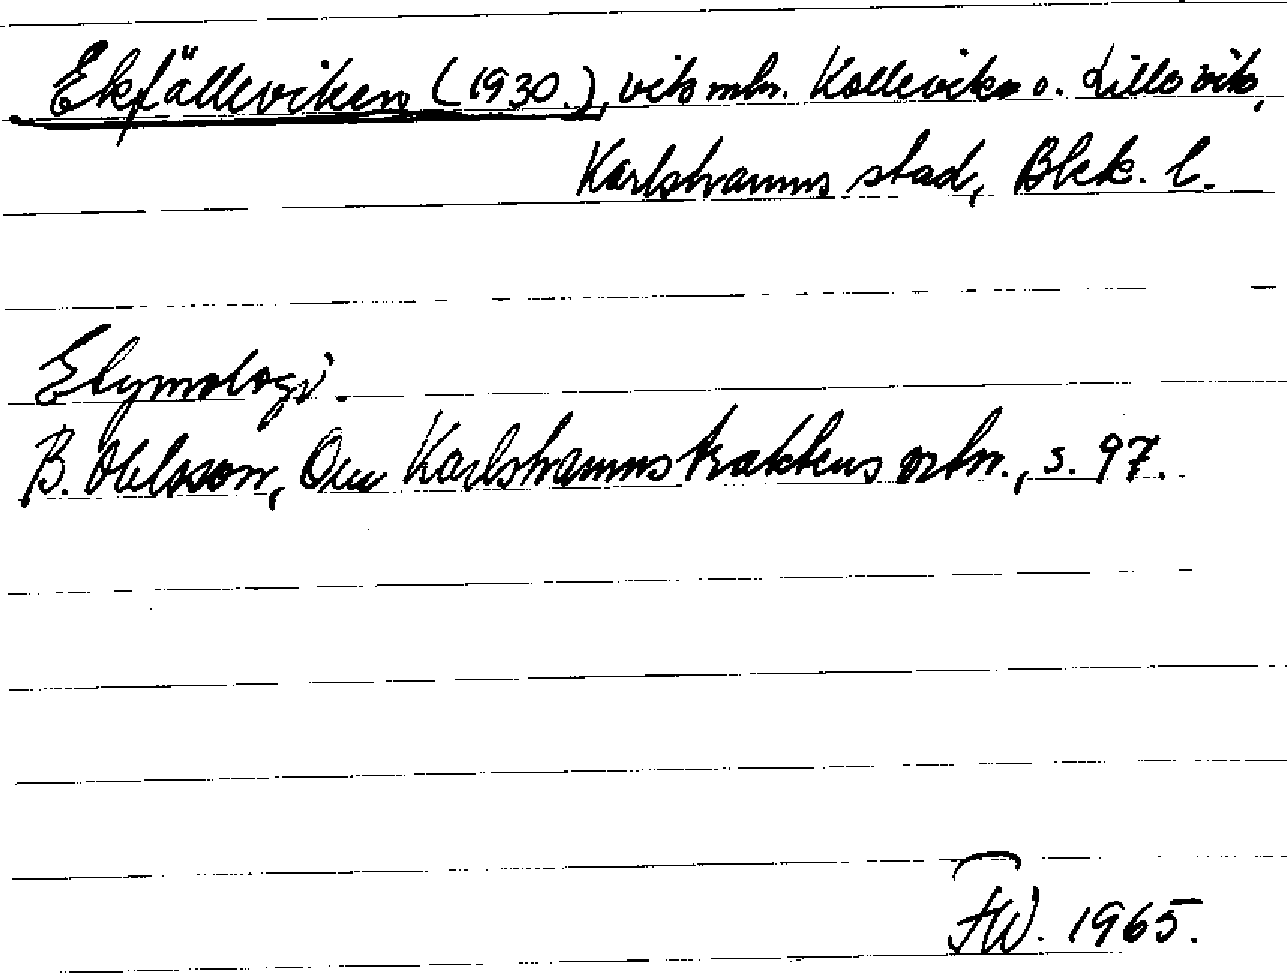 Ekfälleviken (1930.), vik mln. Kollevik o. Lillevik,
Karlshamns stad, Blek. l.
Etymologi.
B. Ohlsson, Om Karlshamnstraktens ortn., s. 97.
FW. 1965.